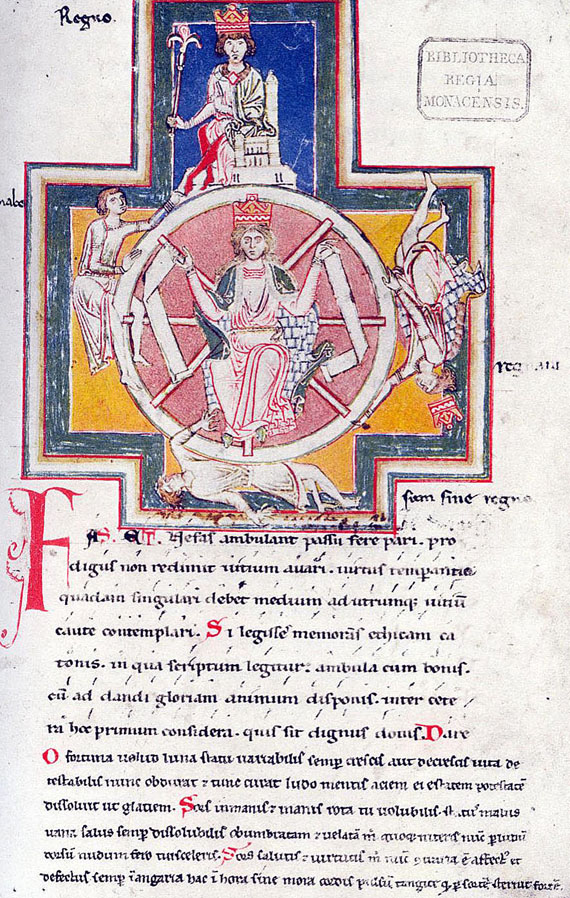 Regno.
BIBLIOTHECA
REGIA
MONACENSIS.
nabo
regnaui
sum sine regno
FAS. ET. Nefas ambulant passu fere pari. pro
digus non redimit uitium auari. uirtus temperantia
quadam singulari debet medium ad utrumq; uitiū
caute contemplari. Si legisse memoras ethicam ca
tonis. in qua scriptum legitur. ambula cum bonis.
cū ad dandi gloriam animum disponis. inter cete
ri hoc primum considera. quis sit dignus donis. Dare
O fortuna uelud luna statu uariabilis semp crescis aut decrescis uita de
testabilis nunc obdurat & tunc curat ludo mentis aciem egestatem potestatē
dissoluit ut glatiem. Sors inmanis & inanis rota tu uolubilis. status malus
uana salus semp dissolubilis obumbratam & uelatā m quoq; niteris nūc p ludū
dorsum nudum fero tui sceleris. Sors salutis & uirtutis m nūc ē affect et
defect semp angaria hac ī hora sine mora cordis pulsum tangite